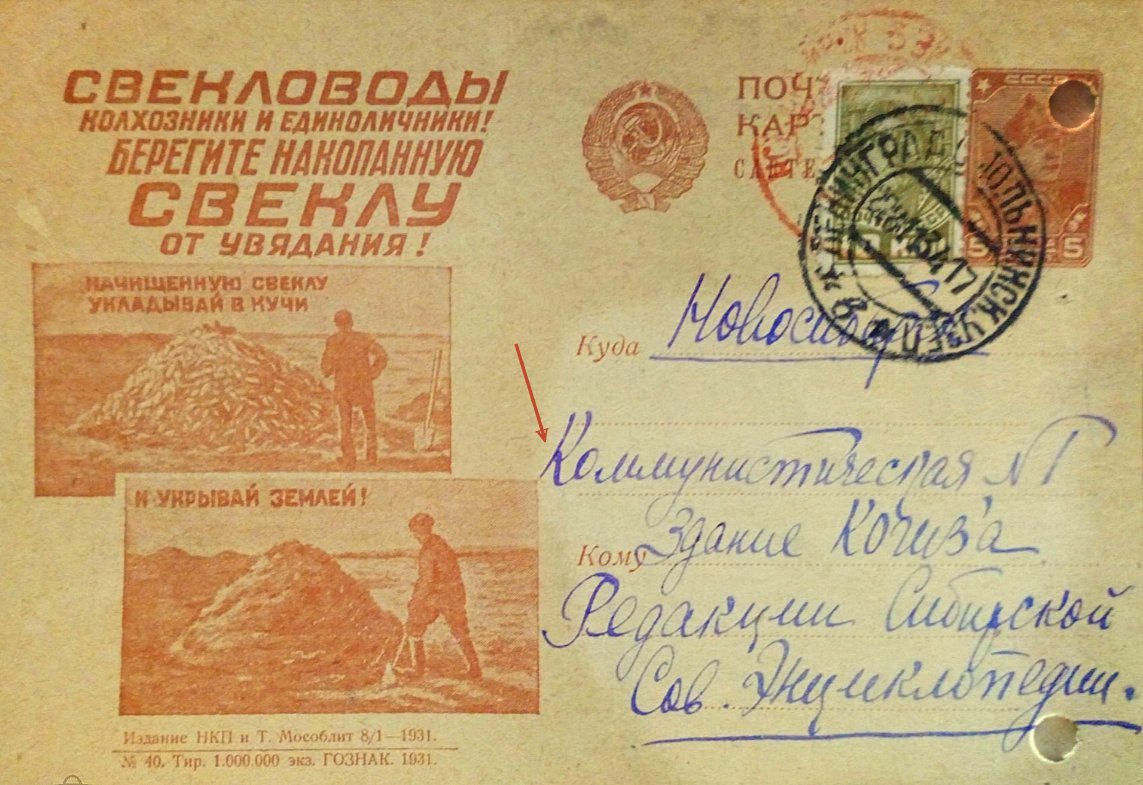 СВЕКЛОВОДЫ
КОЛХОЗНИКИ И ЕДИНОЛИЧНИКИ!
БЕРЕГИТЕ НАКОПАННУЮ
СВЕКЛУ
ОТ УВЯДАНИЯ!
НАЧИЩЕННУЮ СВЕКЛУ
УКЛАДЫВАЙ В КУЧИ
И УКРЫВАЙ ЗЕМЛЕЙ!
Издание НКП и Т. Мособлит 8/1—1931.
№ 40. Тир. 1.000.000 экз. ГОЗНАК. 1931.
ПОЧ
КАР
СССР
5 5
ЛЕНИНГРАД
Куда Новосиб
Коммунистическая
Кому Здание
Редакции Сибирской
Сов. Энциклопедии.